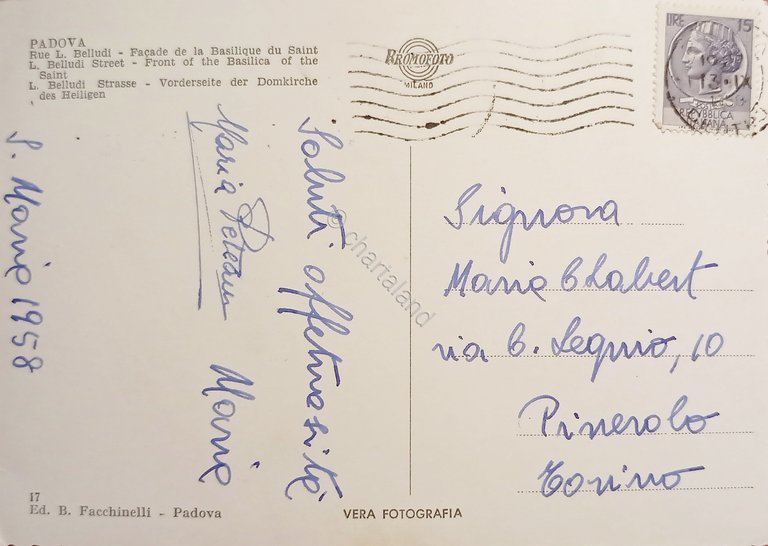 PADOVA
Rue L. Belludi - Façade de la Basilique du Saint
L. Belludi Street - Front of the Basilica of the
Saint
L. Belludi Strasse - Vorderseite der Domkirche
des Heiligen
BROMOFOTO
MILANO
LIRE 15
REPVBBLICA
ITALIANA
13 IX
S. Maria 1958
Maria
Saluti affettuosità
Maria
Signora
Maria Chabert
via C. Lequio, 10
Pinerolo
Torino
© chartaland
17
Ed. B. Facchinelli - Padova
VERA FOTOGRAFIA